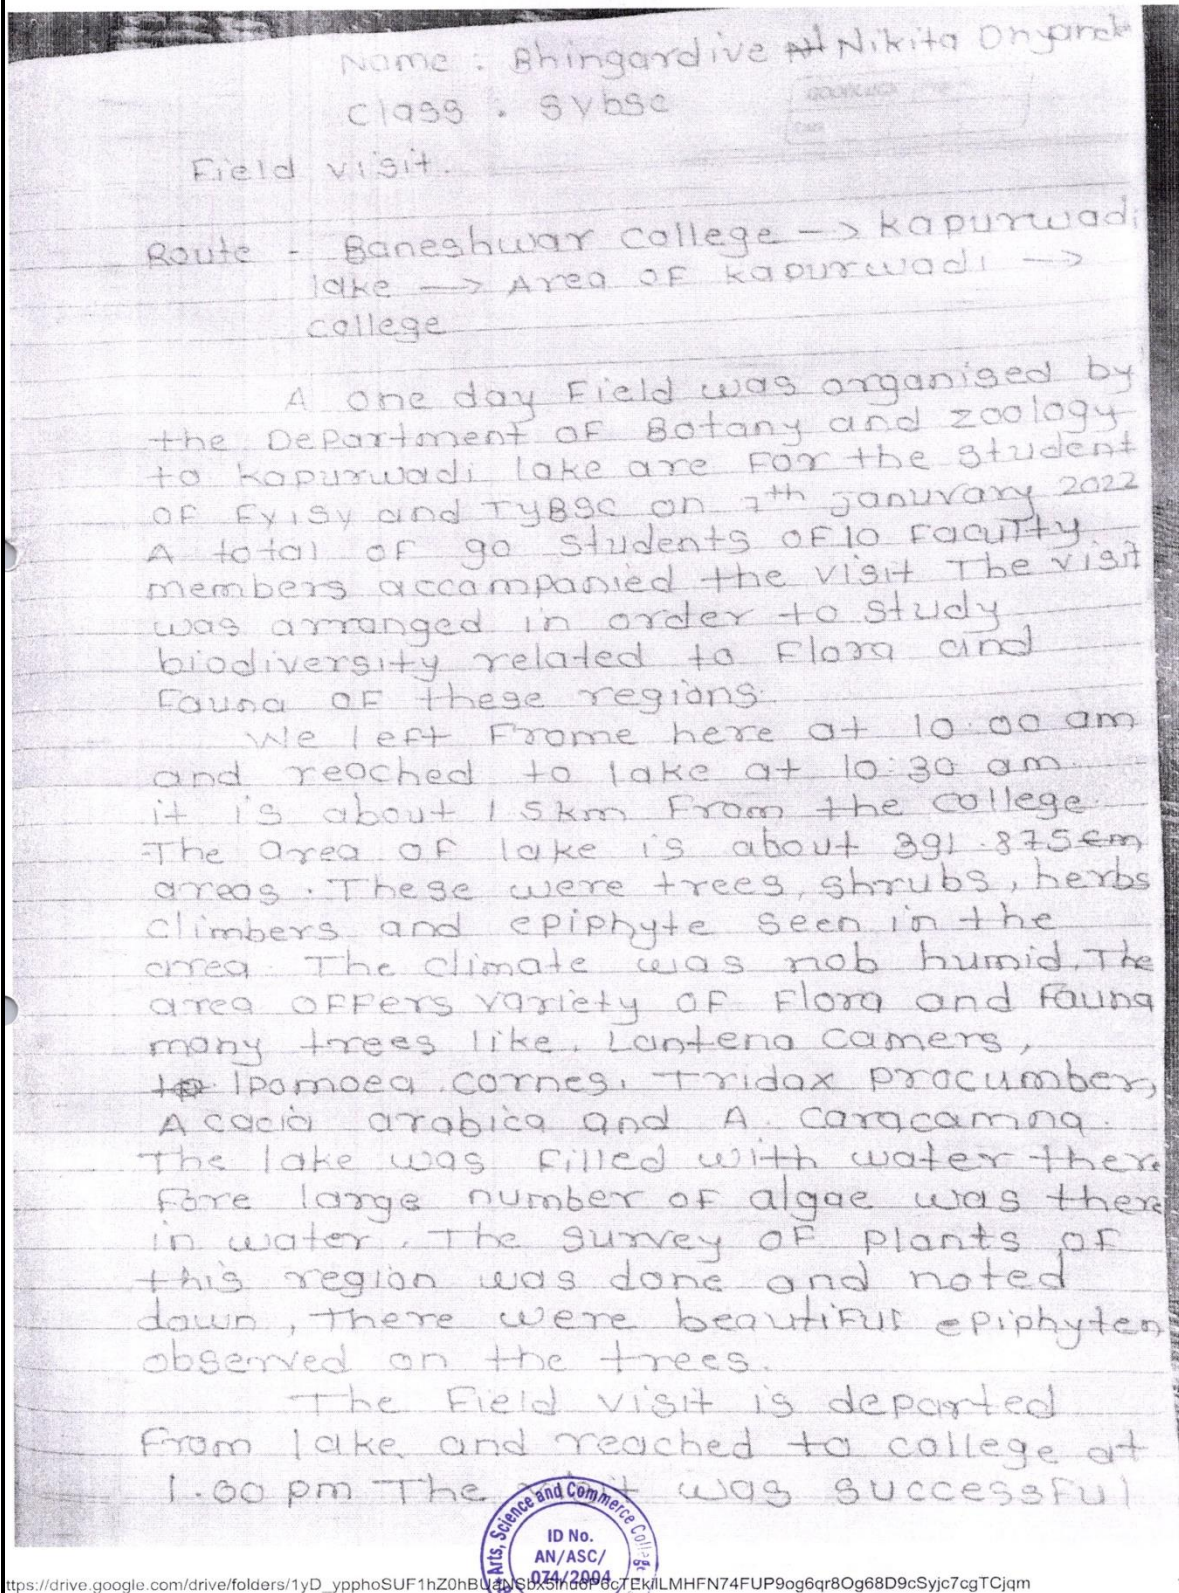 Name : Bhingardive Nikita Dnyande
Class : SYbsc
Field visit.
Route - Baneshwar College -> kapurwadi
lake -> Area of kapurwadi ->
college
A one day Field was organised by
the Department of Botany and zoology
to kapurwadi lake are For the student
of FY,SY and TYBSC on 7th januvary 2022
A total of 90 students of 10 Faculty
members accompanied the visit The visit
was arranged in order to study
biodiversity related to Flora and
Fauna of these regions.
We left Frome here at 10:00 am
and reached to lake at 10:30 am.
it is about 1.5km From the college.
The area of lake is about 391.875
areas. These were trees, shrubs, herbs
climbers and epiphyte seen in the
area. The climate was nob humid. The
area offers variety of Flora and Fauna
many trees like. Lantena camers,
Ipomoea cornes, Tridax procumber,
Acacia arabica and A. caracamna.
The lake was filled with water there
fore large number of algae was there
in water. The survey of plants of
this region was done and noted
down, There were beautiful epiphyten
observed on the trees.
The Field visit is departed
From lake and reached to college at
1.00 pm The was successful
Arts, Science and Commerce College
ID No.
AN/ASC/
074/2004